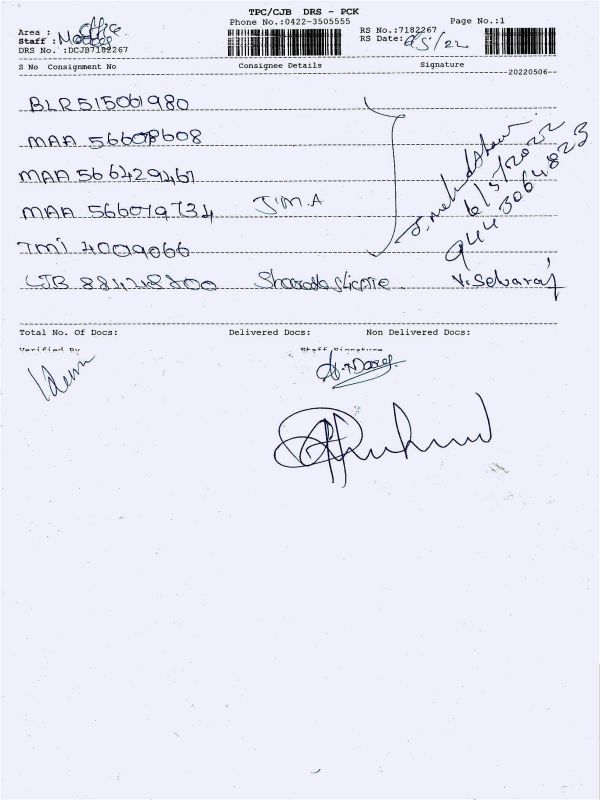 TPC/CJB DRS - PCK
Phone No.:0422-3505555 Page No.:1
Area : Office RS No.:7182267
Staff : RS Date: 6/5/22
DRS No. :DCJB7182267
S No Consignment No Consignee Details Signature
20220506
BLR 515061980
MAA 566078608
MAA 566429461
MAA 566079734 J.M.A
TMJ 4009066
CJB
V. Selvaraj
6/5/2022
9443064823
Total No. Of Docs: Delivered Docs: Non Delivered Docs:
Verified By Staff Signature